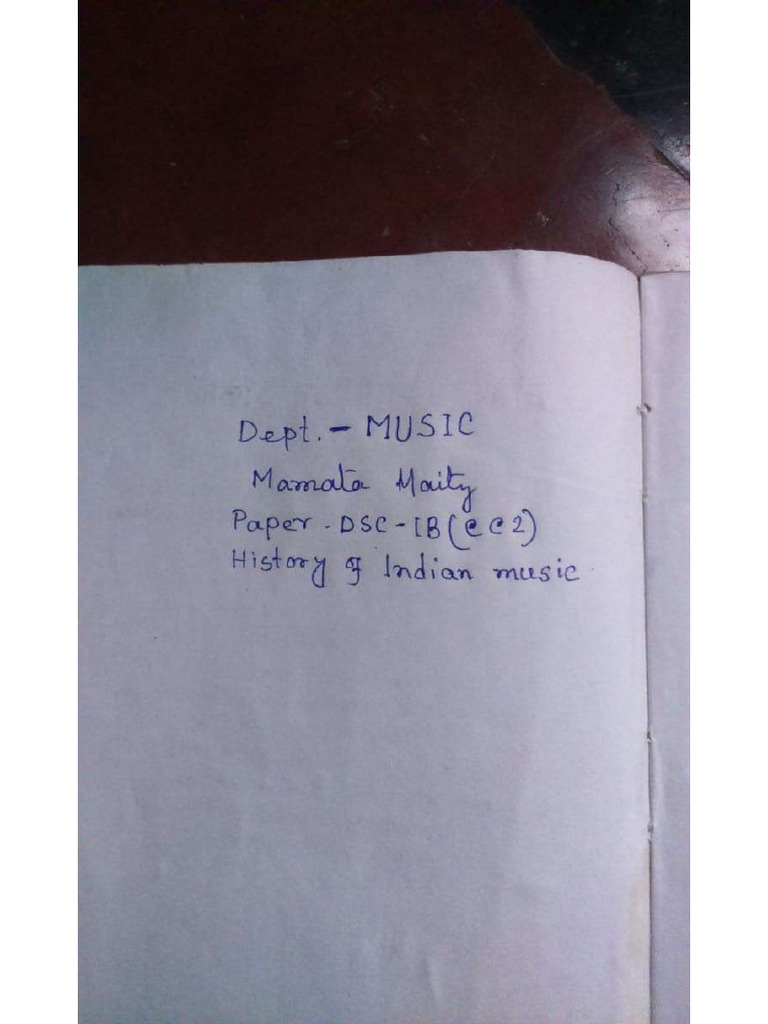 Dept. - MUSIC
Mamata Maity
Paper - DSC - 1B (CC2)
History of Indian music